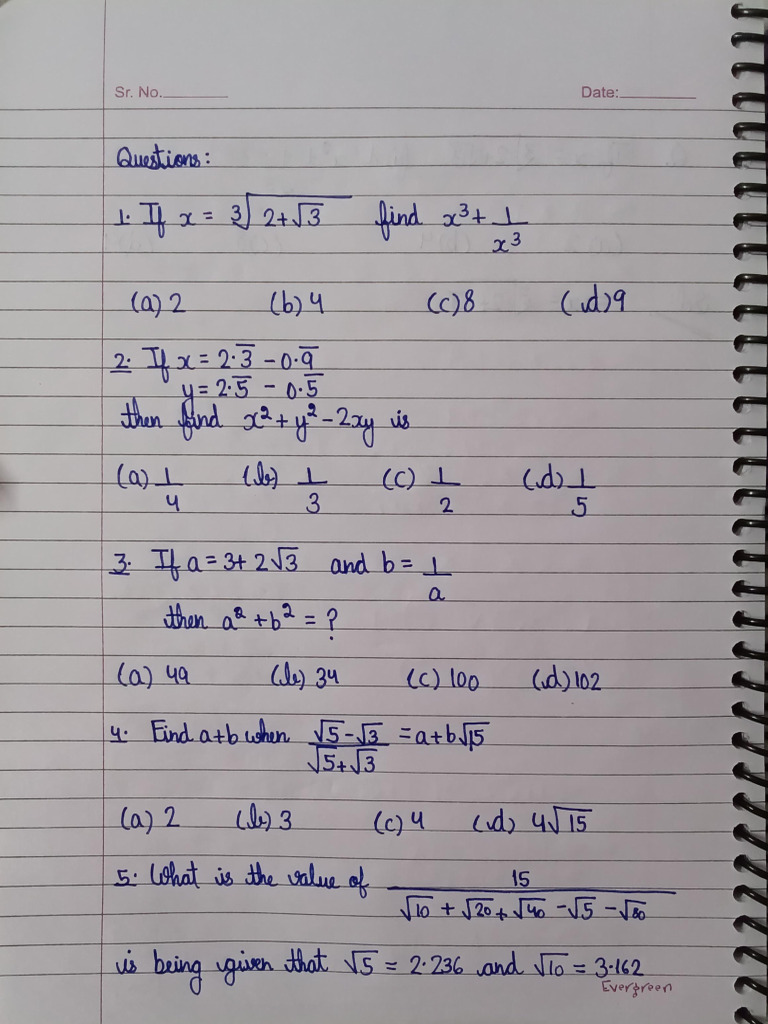 Sr. No.
Date:
Questions:
1. If x = ∛(2+√3) find x³ + 1/x³
(a) 2 (b) 4 (c) 8 (d) 9
2. If x = 2.3̅ - 0.9̅
y = 2.5̅ - 0.5̅
then find x² + y² - 2xy is
(a) 1/4 (b) 1/3 (c) 1/2 (d) 1/5
3. If a = 3 + 2√3 and b = 1/a
then a² + b² = ?
(a) 49 (b) 34 (c) 100 (d) 102
4. Find a+b when (√5-√3)/(√5+√3) = a+b√15
(a) 2 (b) 3 (c) 4 (d) 4√15
5. What is the value of 15/(√10 + √20 + √40 - √5 - √80)
is being given that √5 = 2.236 and √10 = 3.162
Evergreen